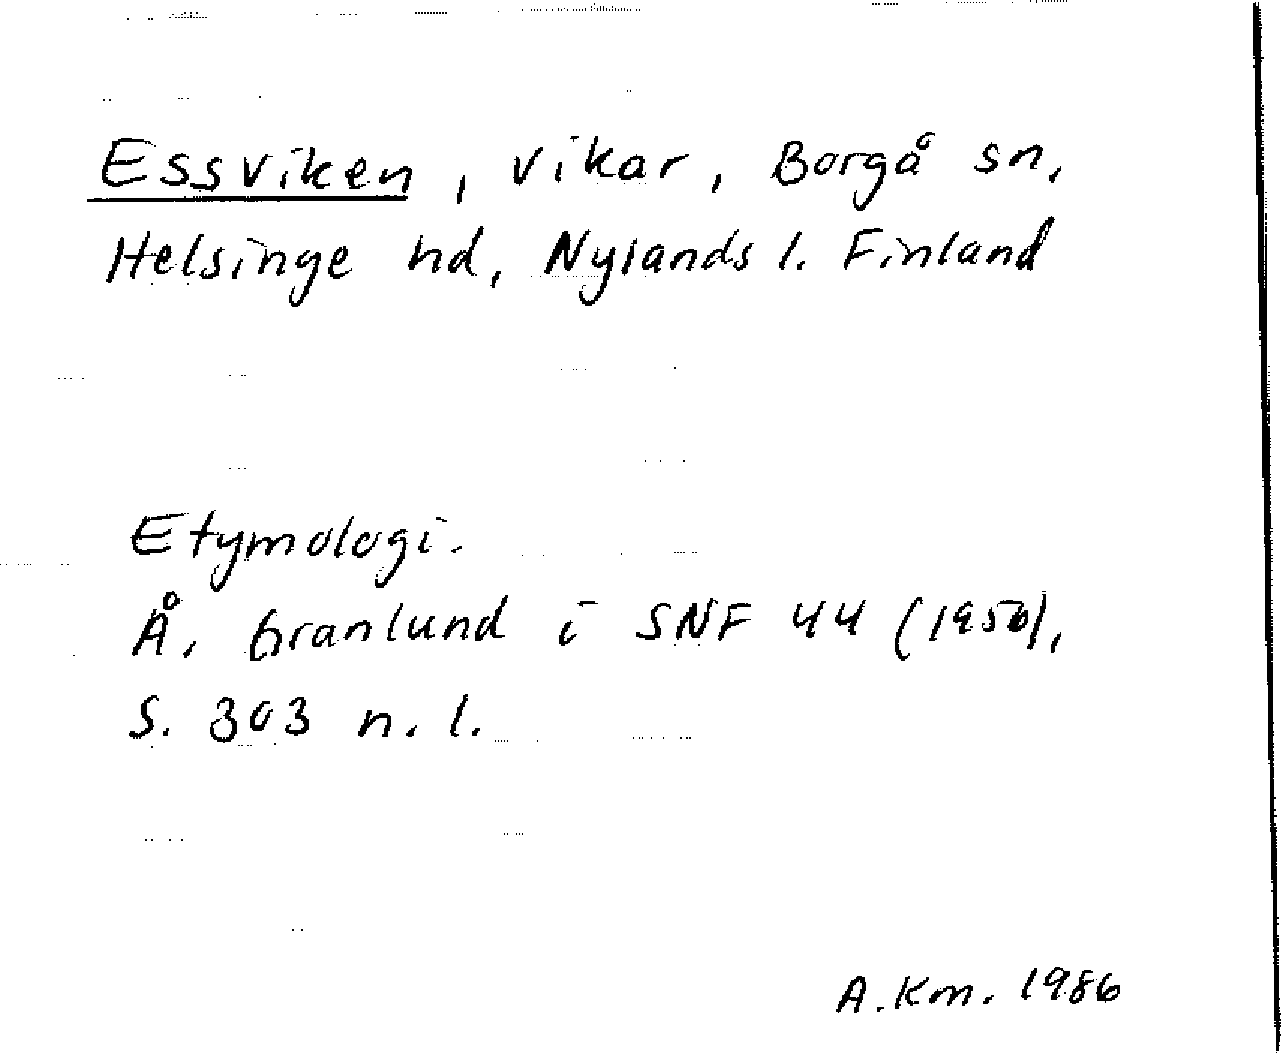 Essviken, vikar, Borgå sn,
Helsinge hd, Nylands l. Finland
Etymologi.
Å. Granlund i SNF 44 (1956),
S. 303 n. l.
A. Km. 1986